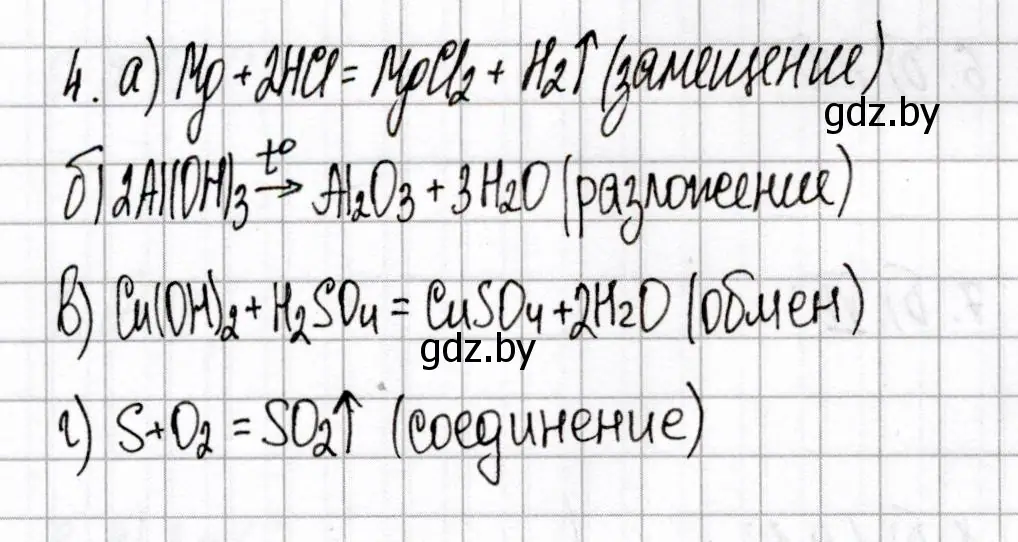 4. а) Mg + 2HCl = MgCl2 + H2↑ (замещение)
gdz.by
б) 2Al(OH)3 t° → Al2O3 + 3H2O (разложение)
в) Cu(OH)2 + H2SO4 = CuSO4 + 2H2O (обмен)
gdz.by
г) S + O2 = SO2↑ (соединение)